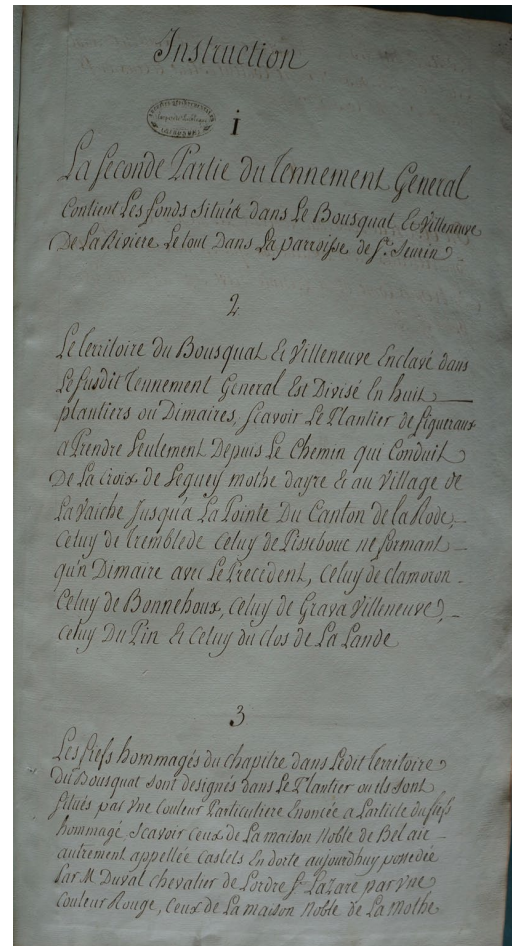 Instruction
1
La Seconde Partie du Tennement General
Contient Les fonds Situés dans Le Bousquat Et Villeneuve
De La Rivière Le tout Dans La parroisse de St. Seurin
2
Le territoire du Bousquat Et Villeneuve Enclavé dans
Le susdit Tennement General Est Divisé En huit
plantiers ou Dimaires, scavoir Le Plantier de figueraux
a Prendre Seulement Depuis Le Chemin qui Conduit
De La Croix de Seguey mothe dayre & au Village de
La Vaiche Jusqu'a La Pointe Du Canton de la Rode,
Celuy de Tremblede Celuy de Pissebouc ne formant
qu'n Dimaire avec Le Precedent, Celuy de clamoron
Celuy de Bonnehoux, Celuy de Grava Villeneuve,
Celuy Du Pin & Celuy du clos de La Lande
3
Les fiefs hommagés du chapitre dans Ledit Territoire
Du Bousquat sont designés dans Le Plantier ou ils sont
Situés par Vne Couleur Particuliere Enoncée a Larticle du fief
hommagé scavoir Ceux de La maison Noble de Bel air
autrement appellée Castels En dorte aujourdhuy possedée
Par M. Duval chevalier de Lordre St. Lazare par Vne
Couleur Rouge, Ceux de La maison Noble de La Mothe